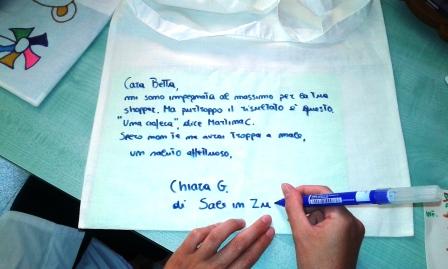 Cara Betta,
mi sono impegnata al massimo per la tua
shopper. Ma purtroppo il risultato è questo.
"Una ciofeca", dice Martina C.
Spero non te ne avrai troppo a male,
un saluto affettuoso,
Chiara G.
di Sales in Zu